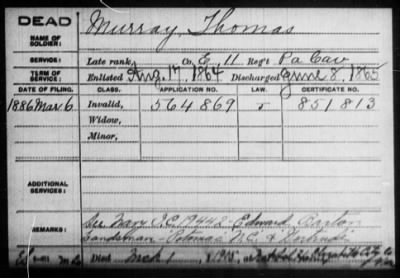 DEAD
NAME OF SOLDIER: Murray, Thomas
SERVICE: Late rank, Co. E 11 Reg't Pa Cav
TERM OF SERVICE: Enlisted Aug. 17, 1864 Discharged June 8, 1865
DATE OF FILING. CLASS. APPLICATION NO. LAW. CERTIFICATE NO.
1886 Mar 6 Invalid, 564869 851813
Widow,
Minor,
ADDITIONAL SERVICES:
See Navy I.C. 19448 - Edward Barton
REMARKS: Landsman - Potomac N.C. &
Died Mch 1, 1915, at